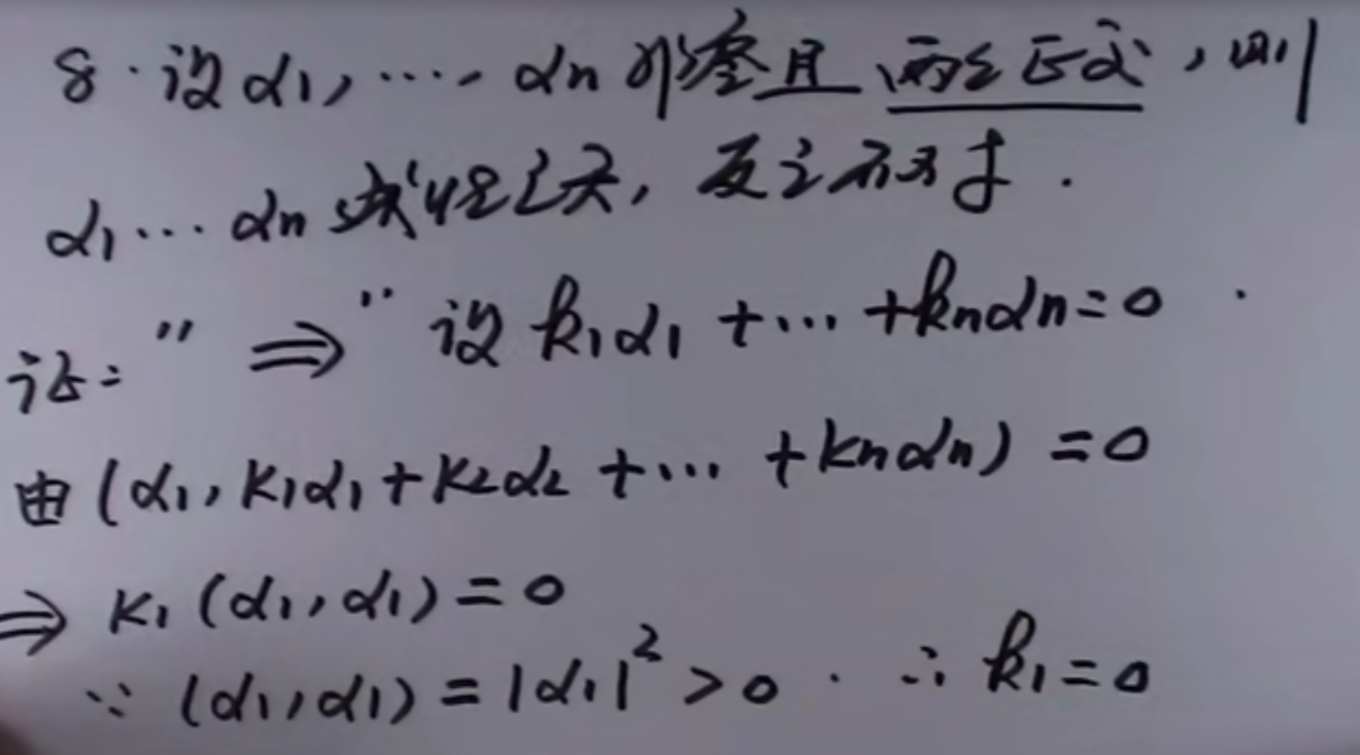 8. 设α1, ···, αn 非零且两两正交, 则
α1 ··· αn 线性无关, 反之不对.
证: "⇒" 设 k1α1 + ··· + knαn = 0.
由 (α1, k1α1 + k2α2 + ··· + knαn) = 0
⇒ k1 (α1, α1) = 0
∵ (α1, α1) = |α1|² > 0. ∴ k1 = 0